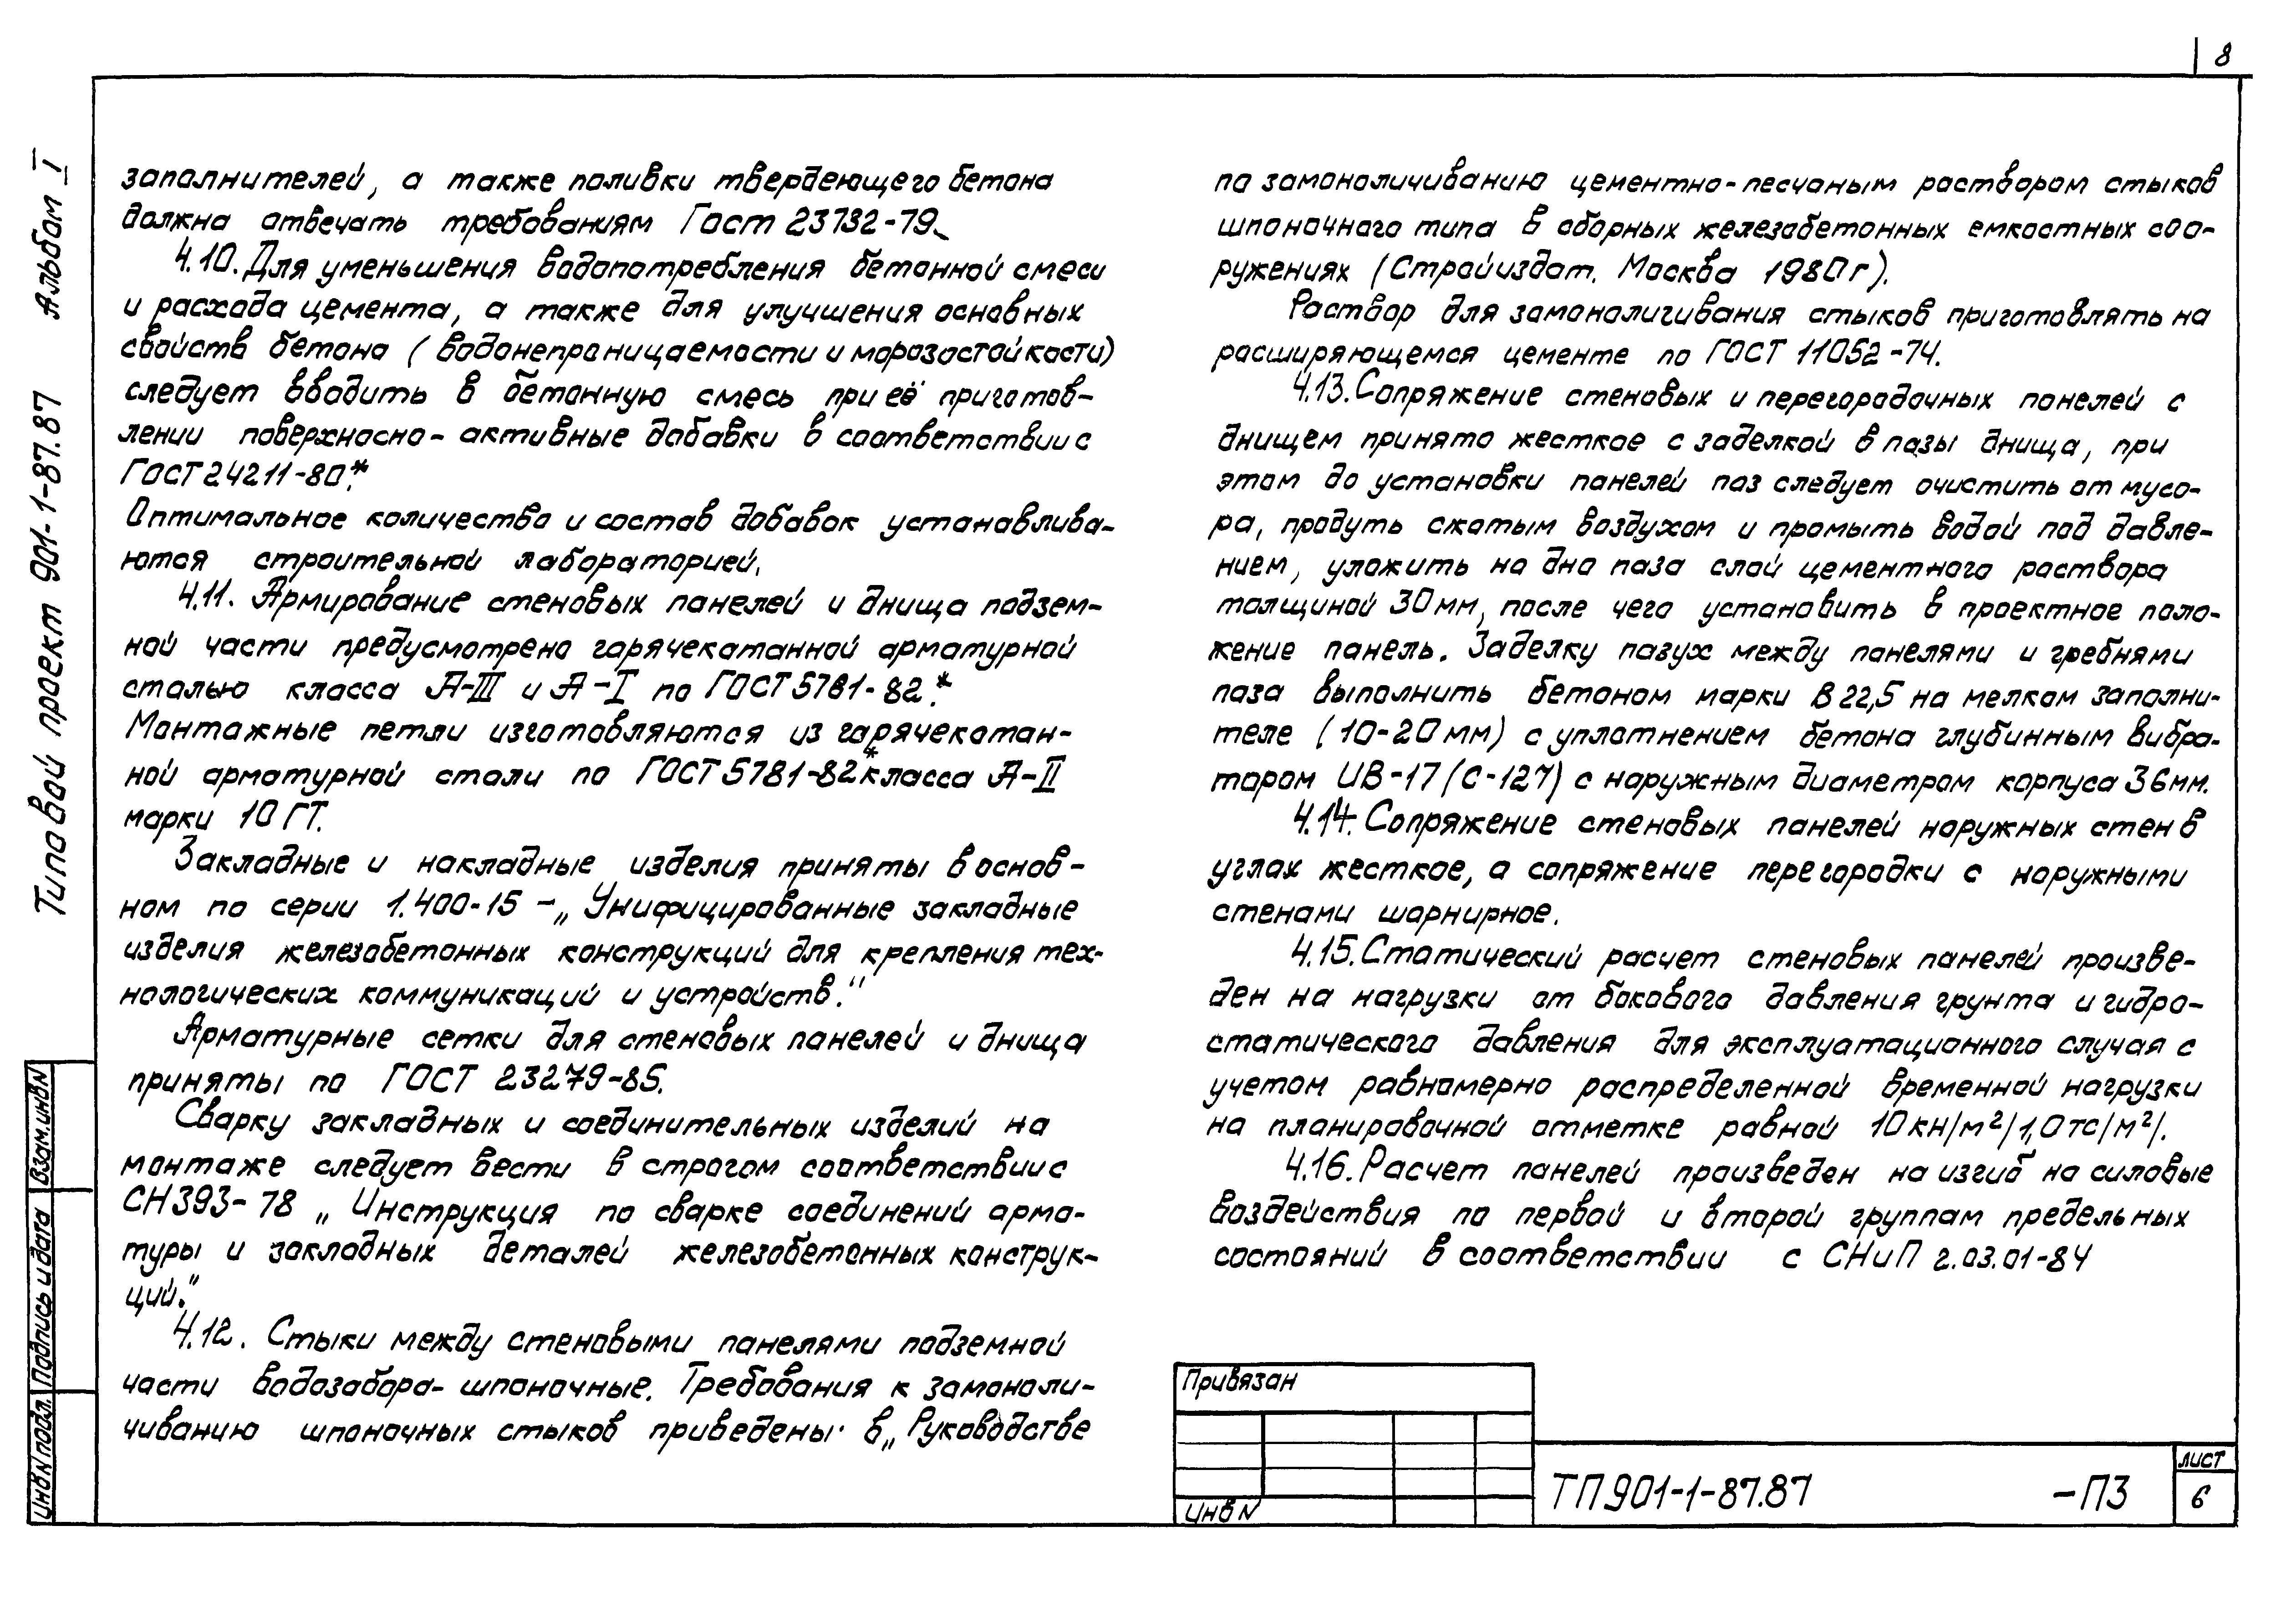 8
Типовой проект 901-1-87.87 Альбом I
заполнителей, а также поливки твердеющего бетона
должна отвечать требованиям Гост 23732-79.
4.10. Для уменьшения водопотребления бетонной смеси
и расхода цемента, а также для улучшения основных
свойств бетона (водонепроницаемости и морозостойкости)
следует вводить в бетонную смесь при её приготов-
лении поверхносно-активные добавки в соответствии с
ГОСТ 24211-80.*
Оптимальное количество и состав добавок устанавлива-
ются строительной лабораторией.
4.11. Армирование стеновых панелей и днища подзем-
ной части предусмотрено горячекатанной арматурной
сталью класса А-III и А-I по ГОСТ 5781-82.*
Монтажные петли изготовляются из горячекатан-
ной арматурной стали по ГОСТ 5781-82* класса А-II
марки 10 ГТ.
Закладные и накладные изделия приняты в основ-
ном по серии 1.400-15 -„Унифицированные закладные
изделия железобетонных конструкций для крепления тех-
нологических коммуникаций и устройств."
Арматурные сетки для стеновых панелей и днища
приняты по ГОСТ 23279-85.
Сварку закладных и соединительных изделий на
монтаже следует вести в строгом соответствии с
СН 393-78 „Инструкция по сварке соединений арма-
туры и закладных деталей железобетонных конструк-
ций."
4.12. Стыки между стеновыми панелями подземной
части водозабора- шпоночные. Требования к замоноли-
чиванию шпоночных стыков приведены в „Руководстве
по замоноличиванию цементно-песчаным раствором стыков
шпоночного типа в сборных железобетонных емкостных соо-
ружениях (Стройиздат. Москва 1980г).
Раствор для замоноличивания стыков приготовлять на
расширяющемся цементе по ГОСТ 11052-74.
4.13. Сопряжение стеновых и перегородочных панелей с
днищем принято жесткое с заделкой в пазы днища, при
этом до установки панелей паз следует очистить от мусо-
ра, продуть сжатым воздухом и промыть водой под давле-
нием, уложить на дно паза слой цементного раствора
толщиной 30мм, после чего установить в проектное поло-
жение панель. Заделку пазух между панелями и гребнями
паза выполнить бетоном марки В 22,5 на мелком заполни-
теле (10-20мм) с уплотнением бетона глубинным вибра-
тором ИВ-17 (С-127) с наружным диаметром корпуса 36мм.
4.14. Сопряжение стеновых панелей наружных стен в
углах жесткое, а сопряжение перегородки с наружными
стенами шарнирное.
4.15. Статический расчет стеновых панелей произве-
ден на нагрузки от бокового давления грунта и гидро-
статического давления для эксплуатационного случая с
учетом равномерно распределенной временной нагрузки
на планировочной отметке равной 10кн/м²/1,0тс/м²/.
4.16. Расчет панелей произведен на изгиб на силовые
воздействия по первой и второй группам предельных
состояний в соответствии с СНиП 2.03.01-84
Взам.инвN
Подпись и дата
ИнвNподл.
Привязан
Инв N
ТП 901-1-87.87 -ПЗ
лист
6